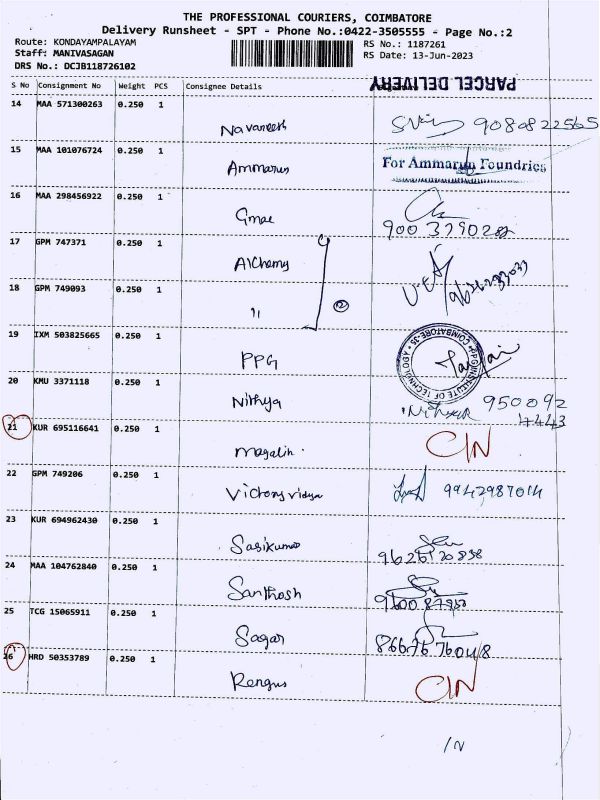 THE PROFESSIONAL COURIERS, COIMBATORE
Delivery Runsheet - SPT - Phone No.:0422-3505555 - Page No.:2
Route: KONDAYAMPALAYAM RS No.: 1187261
Staff: MANIVASAGAN RS Date: 13-Jun-2023
DRS No.: DCJB118726102
PARCEL DELIVERY
S No Consignment No Weight PCS Consignee Details
14 MAA 571300263 0.250 1
Navaneeth 9080822565
15 MAA 101076724 0.250 1
Ammarun For Ammarun Foundries
16 MAA 298456922 0.250 1
Gmae
17 GPM 747371 0.250 1
Alchemy
18 GPM 749093 0.250 1
11 12
19 IXM 503825665 0.250 1
PPG
20 KMU 3371118 0.250 1
Nithya 950092
4443
21 KUR 695116641 0.250 1
Magalin CIN
22 GPM 749206 0.250 1
Victory vidya 9942987014
23 KUR 694962430 0.250 1
Sasikumar
24 MAA 104762840 0.250 1
Santhosh
25 TCG 15065911 0.250 1
Sagar
26 HRD 50353789 0.250 1
Rengus CIN